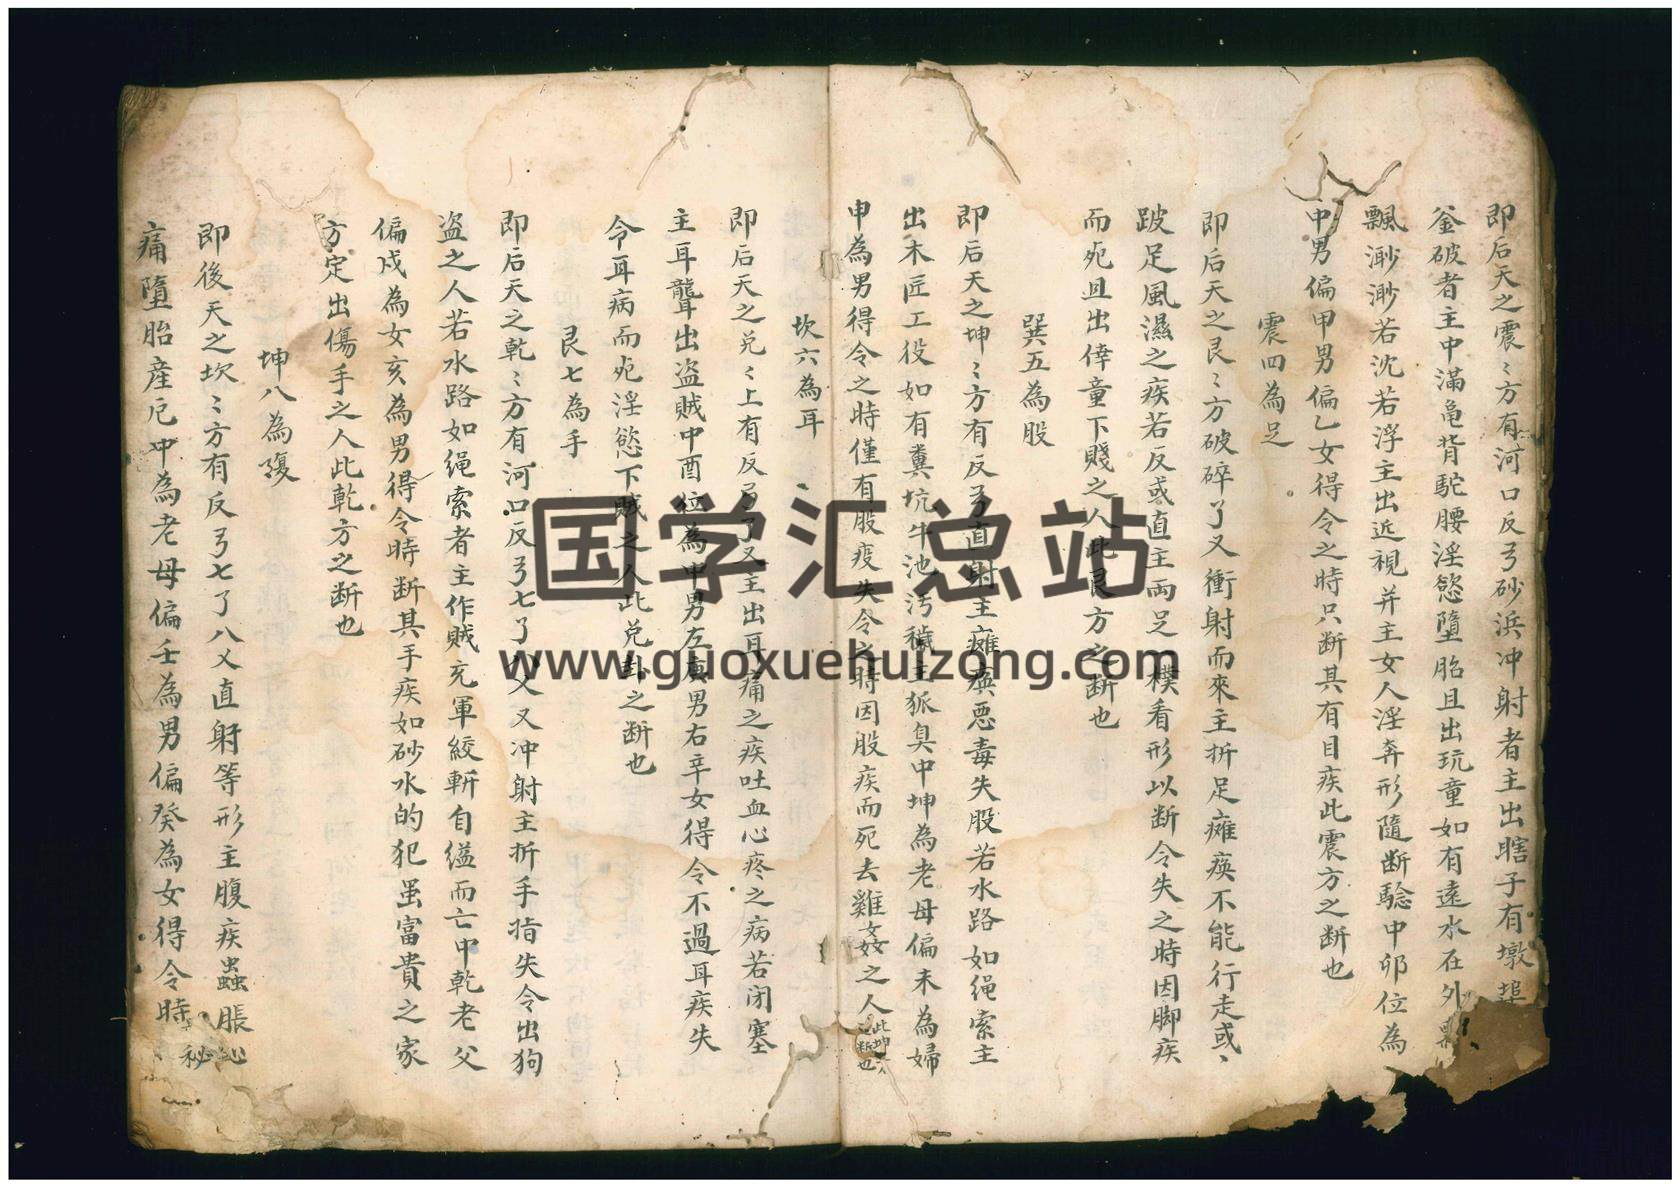 即后天之震〻方有河口反弓砂浜冲射者主出瞎子有墩埠
釜破者主中滿亀背駝腰淫慾墮胎且出玩童如有遠水在外
飄渺渺若沈若浮主出近視并主女人淫奔形隨断騐中卯位為
中男偏甲男偏乙女得令之時只断其有目疾此震方之断也
震四為足
即后天之艮〻方破碎了又衝射而來主折足癱瘓不能行走或〻
跛足風濕之疾若反或直主両足 樸看形以断令失之時因脚疾
而死且出倖童下賤之人此艮方之断也
巽五為股
即后天之坤〻方有反弓直射主癱瘓惡毒失股若水路如绳索主
出木匠工役如有糞坑牛池汚穢主狐臭中坤為老母偏未為婦
申為男得令之時僅有股疫失令之時因股疾而死去雞姦之人此坤
断也
坎六為耳
即后天之兑〻上有反弓了又主出耳痛之疾吐血心疼之病若闭塞
主耳聾出盗賊中酉位為中男左庚男右辛女得令不過耳疾失
令耳病而死淫慾下賤之人此兑卦之断也
艮七為手
即后天之乾〻方有河口反弓七了八乂又冲射主折手指失令出狗
盗之人若水路如绳索者主作贼充軍絞斬自缢而亡中乾老父
偏戍為女亥為男得令時断其手疾如砂水的犯虽富貴之家
方定出傷手之人此乾方之断也
坤八為腹
即後天之坎〻方有反弓七了八乂直躬等形主腹疾蟲脹心
痛墮胎産厄中為老母偏壬為男偏癸為女得令時 秘
国学汇总站
www.guoxuehuizong.com